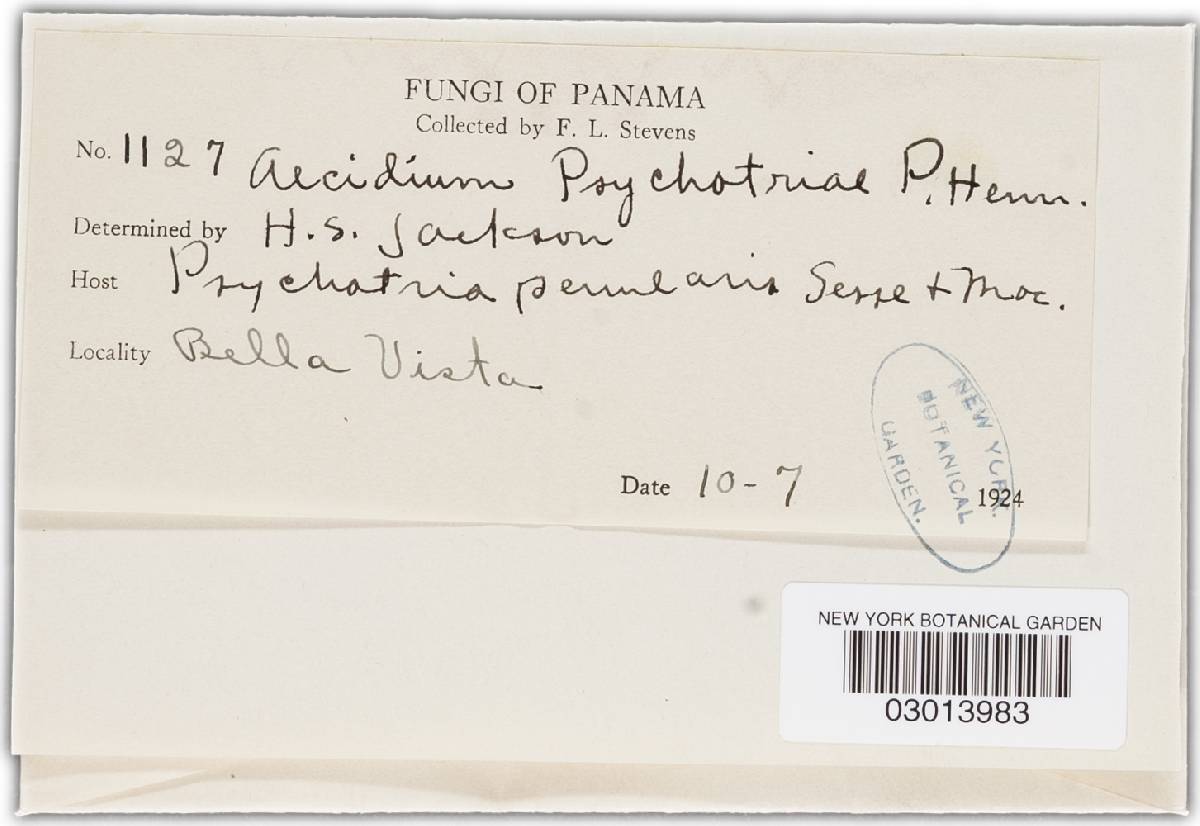 FUNGI OF PANAMA
Collected by F. L. Stevens
No. 1127 Aecidium Psychotriae P. Henn.
Determined by H. S. Jackson
Host Psychotria Sesse + Moc.
Locality Bella Vista
Date 10-7 1924
NEW YORK
BOTANICAL
GARDEN.
NEW YORK BOTANICAL GARDEN
03013983